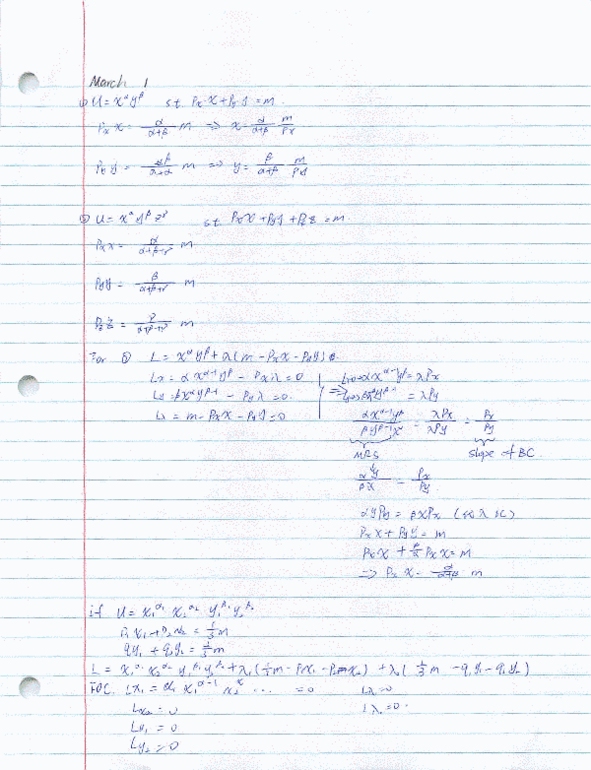 March 1
① U = x^α y^β st PxX + Pyy = m.
Pxx = α/(α+β) m ⇒ x = α/(α+β) m/Px
Pyy = m ⇒ y = β/(α+β) m/Py
② U = x^α y^β z^γ st Pxx + Pyy + Pzz = m.
Pxx = α/(α+β+γ) m
Pyy = β/(α+β+γ) m
Pzz = γ/(α+β+γ) m
For ① L = x^α y^β + λ(m - Pxx - Pyy)
Lx = αx^(α-1)y^β - Pxλ = 0
Ly = βx^α y^(β-1) - Pyλ = 0.
Lλ = m - Pxx - Pyy = 0
⇒ αx^(α-1)y^β = λPx
βx^α y^(β-1) = λPy
αx^(α-1)y^β / βy^(β-1)x^α = λPx/λPy = Px/Py
MRS slope of BC
αy/βx = Px/Py
αyPy = βxPx
Pxx + Pyy = m
Pxx + β/α Pxx = m
⇒ Pxx = α/(α+β) m
if U = x₁^α₁ x₂^α₂ y₁^β₁ y₂^β₂
P₁x₁ + P₂x₂ = m
q₁y₁ + q₂y₂ = 1/3 m
L = x₁^α₁ x₂^α₂ y₁^β₁ y₂^β₂ + λ₁( m - P₁x₁ - P₂x₂) + λ₂(1/3 m - q₁y₁ - q₂y₂)
FOC. Lx₁ = α₁ x₁^(α-1) x₂^α ... = 0 Lλ = 0
Lx₂ = 0 Lλ = 0.
Ly₁ = 0
Ly₂ = 0